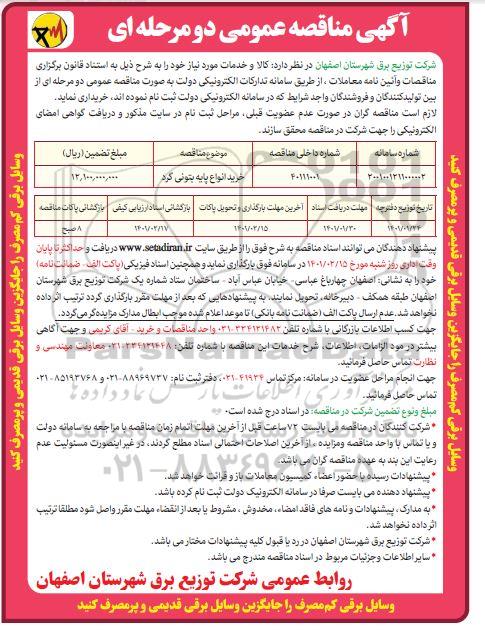 آگهی مناقصه عمومی دو مرحله ای
شرکت توزیع برق شهرستان اصفهان در نظر دارد: کالا و خدمات مورد نیاز خود را به شرح ذیل به استناد قانون برگزاری
مناقصات وآئین نامه معاملات ، از طریق سامانه تدارکات الکترونیکی دولت به صورت مناقصه عمومی دو مرحله ای از
بین تولیدکنندگان و فروشندگان واجد شرایط که در سامانه الکترونیکی دولت ثبت نام نموده اند، خریداری نماید.
لازم است مناقصه گران در صورت عدم عضویت قبلی، مراحل ثبت نام در سایت مذکور و دریافت گواهی امضای
الکترونیکی را جهت شرکت در مناقصه محقق سازند.
شماره سامانه شماره داخلی مناقصه موضوع مناقصه مبلغ تضمین (ریال)
۲۰۰۱۰۰۱۲۱۱۰۰۰۰۰۲ ۴۰۱۱۱۰۰۱ خرید انواع پایه بتونی گرد ۱۲,۱۰۰,۰۰۰,۰۰۰
تاریخ توزیع دفترچه مهلت دریافت اسناد آخرین مهلت بارگذاری و تحویل پاکات بازگشائی اسناد ارزیابی کیفی بازگشائی پاکات مناقصه
۱۴۰۱/۰۱/۲۴ ۱۴۰۱/۰۱/۳۰ ۱۴۰۱/۰۲/۱۵ ۱۴۰۱/۰۲/۱۷ ۸ صبح
پیشنهاد دهندگان می توانند اسناد مناقصه به شرح فوق را از طریق سایت www.setadiran.ir دریافت و حداکثر تا پایان
وقت اداری روز شنبه مورخ ۱۴۰۱/۰۲/۱۵ در سامانه فوق بارگذاری نماید و همچنین اسناد فیزیکی (پاکت الف - ضمانت نامه)
خود را به نشانی: اصفهان چهارباغ عباسی- خیابان عباس آباد - ساختمان ستاد شماره یک شرکت توزیع برق شهرستان
اصفهان طبقه همکف - دبیرخانه، تحویل نمایند. به پیشنهادهایی که بعد از مهلت مقرر بارگذاری گردد ترتیب اثر داده
نخواهد شد. عدم ارسال پاکت الف (ضمانت نامه بانکی) تا موعد اعلام شده موجب ابطال مدارک مزایده گر می گردد.
جهت کسب اطلاعات بازرگانی با شماره تلفن ۳۴۱۲۱۴۸۲-۰۳۱ واحد مناقصات و خرید - آقای کریمی و جهت آگاهی
بیشتر در مورد الزامات، اطلاعات، شرح خدمات این مناقصه با شماره تلفن: ۳۴۱۲۱۴۴۸-۰۳۱ معاونت مهندسی و
نظارت تماس حاصل فرمائید.
جهت انجام مراحل عضویت در سامانه: مرکز تماس ۴۱۹۳۴-۰۲۱، دفتر ثبت نام : ۸۸۹۶۹۷۳۷-۰۲۱ و ۸۵۱۹۳۷۶۸-۰۲۱
تماس حاصل فرمائید.
مبلغ ونوع تضمین شرکت در مناقصه: در اسناد درج شده است.
* شرکت کنندگان در مناقصه می بایست ۷۲ ساعت قبل از آخرین مهلت اتمام زمان مناقصه با مراجعه به سامانه دولت
و یا تماس با واحد مناقصه ومزایده ، از آخرین اصلاحات احتمالی اسناد مطلع گردند، در غیر اینصورت مسئولیت عدم
رعایت این بند به عهده مناقصه گران می باشد.
* پیشنهادات رسیده با حضور اعضاء کمیسیون معاملات باز و قرائت خواهد شد.
* پیشنهاد دهنده می بایست صرفا در سامانه الکترونیک دولت ثبت نام کرده باشد.
* به مدارک ، پیشنهادات و نامه های فاقد امضاء، مخدوش ، مشروط یا بعد از انقضاء مهلت مقرر واصل شود مطلقا ترتیب
اثر داده نخواهد شد.
* شرکت توزیع برق شهرستان اصفهان در رد یا قبول کلیه پیشنهادات مختار می باشد.
* سایر اطلاعات وجزئیات مربوط در اسناد مناقصه مندرج می باشد.
روابط عمومی شرکت توزیع برق شهرستان اصفهان
وسایل برقی کم مصرف را جایگزین وسایل برقی قدیمی و پرمصرف کنید
وسایل برقی کم مصرف را جایگزین وسایل برقی قدیمی و پرمصرف کنید
وسایل برقی کم مصرف را جایگزین وسایل برقی قدیمی و پرمصرف کنید
۰۲۱-۸۸۳۴۹۶۷۰-۸